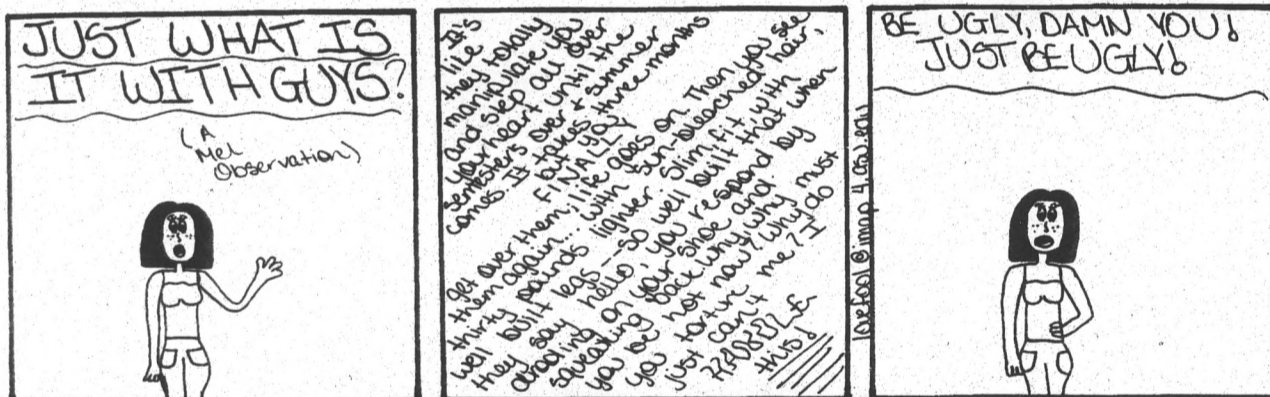 JUST WHAT IS
IT WITH GUYS?
(A
Mel
Observation)
It's
like
they totally
manipulate you
and step all over
your heart until the
semester's over & summer
comes. It takes three months
but you
FINALLY
get over them, life goes on. Then you see
them again, with sun-bleached hair,
thirty pounds lighter, slim, fit, with
well built legs -- so well built that when
they say hello you respond by
drooling on your shoe and
squeaking back why, why must
you beg not now? Why do
you torture me? I
just can't
this!
BE UGLY, DAMN YOU!
JUST BE UGLY!
lovefool@imap4.asu.edu